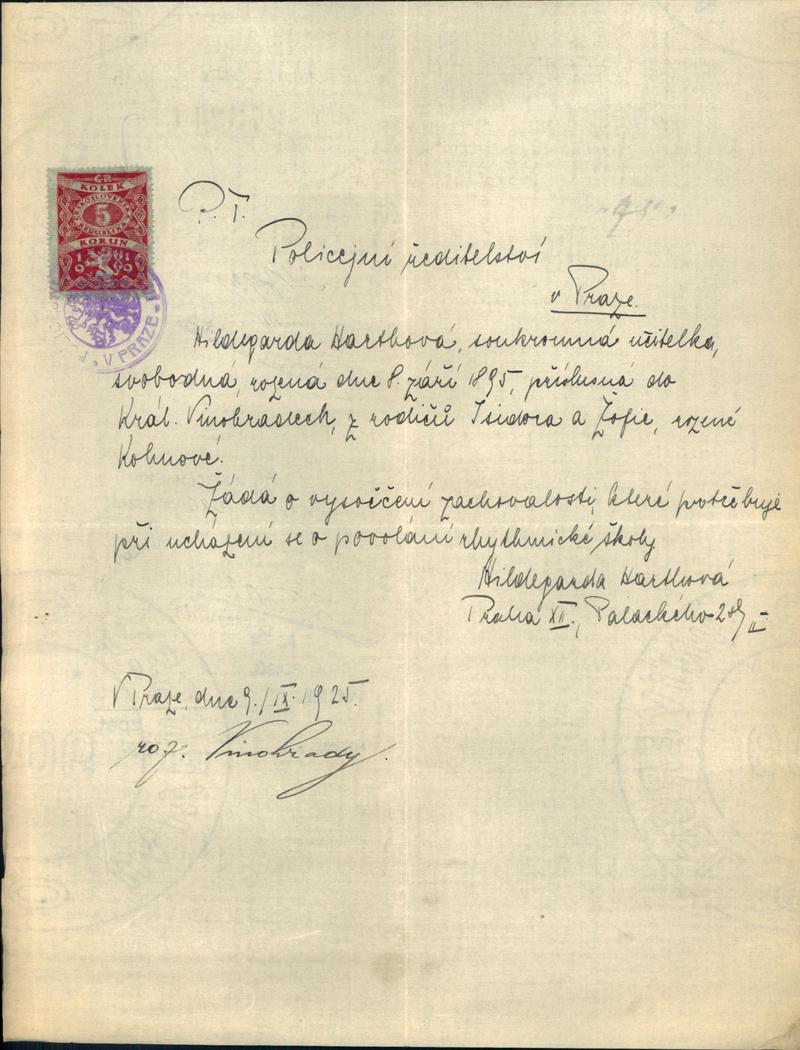 KOLEK
ČESKOSLOVENSKÁ
5
KORUN
1919
V PRAZE
P. T.
Policejní ředitelství
v Praze.
Hildegarda Harthová, soukromná učitelka,
svobodná, rozená dne 8. září 1895, příslusná do
Král. Vinohradech, z rodičů Isidora a Žofie, rozené
Kohnové.
Žádá o vysvěčení zachovalosti, které potřebuje
při ucházení se o povolání rhythmické školy
Hildegarda Harthová
Praha XII., Palackého
V Praze, dne 9./IX. 1925.
roz. Vinohrady.